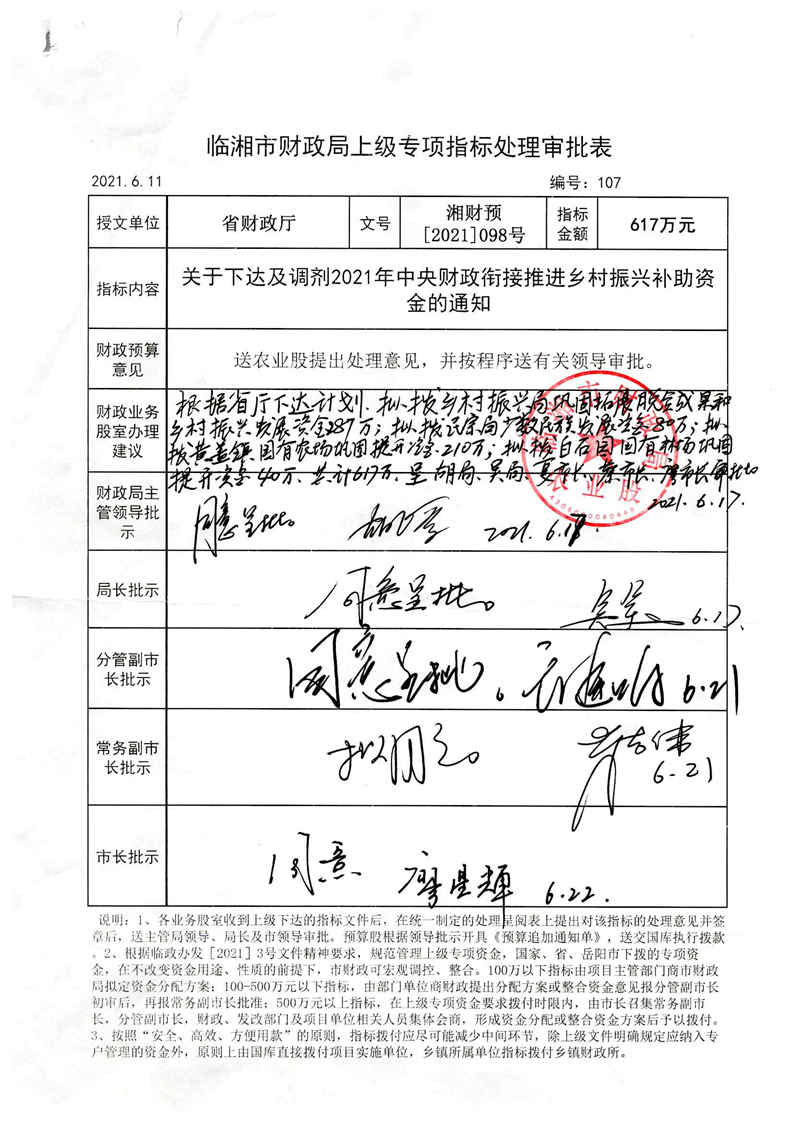 临湘市财政局上级专项指标处理审批表
2021.6.11 编号：107
授文单位 省财政厅 文号 湘财预[2021]098号 指标金额 617万元
指标内容 关于下达及调剂2021年中央财政衔接推进乡村振兴补助资金的通知
财政预算意见 送农业股提出处理意见，并按程序送有关领导审批。
财政业务股室办理建议
根据省厅下达计划，拟拨乡村振兴局巩固拓展脱贫成果和
乡村振兴发展资金287万；拟拨民宗局少数民族发展资金80万；拟
拨黄盖镇国有农场巩固提升资金210万；拟拨白石园国有林场巩固
提升资金40万。共计617万。呈胡局、吴局、
2021.6.17.
农业股
4306000040448
财政局主管领导批示 同意呈批。 2021.6.17.
局长批示 同意呈批。 6.17.
分管副市长批示 同意呈批。 6.21
常务副市长批示 拟同意。 6.21
市长批示 同意. 廖星辉 6.22.
说明：1、各业务股室收到上级下达的指标文件后，在统一制定的处理呈阅表上提出对该指标的处理意见并签
章后，送主管局领导、局长及市领导审批。预算股根据领导批示开具《预算追加通知单》，送交国库执行拨款
。2、根据临政办发[2021]3号文件精神要求，规范管理上级专项资金，国家、省、岳阳市下拨的专项资
金，在不改变资金用途、性质的前提下，市财政可宏观调控、整合。100万以下指标由项目主管部门商市财政
局拟定资金分配方案；100-500万元以下指标，由部门单位商财政提出分配方案或整合资金意见报分管副市长
初审后，再报常务副市长批准；500万元以上指标，在上级专项资金要求拨付时限内，由市长召集常务副市
长，分管副市长，财政、发改部门及项目单位相关人员集体会商，形成资金分配或整合资金方案后予以拨付。
3、按照“安全、高效、方便用款”的原则，指标拨付应尽可能减少中间环节，除上级文件明确规定应纳入专
户管理的资金外，原则上由国库直接拨付项目实施单位，乡镇所属单位指标拨付乡镇财政所。